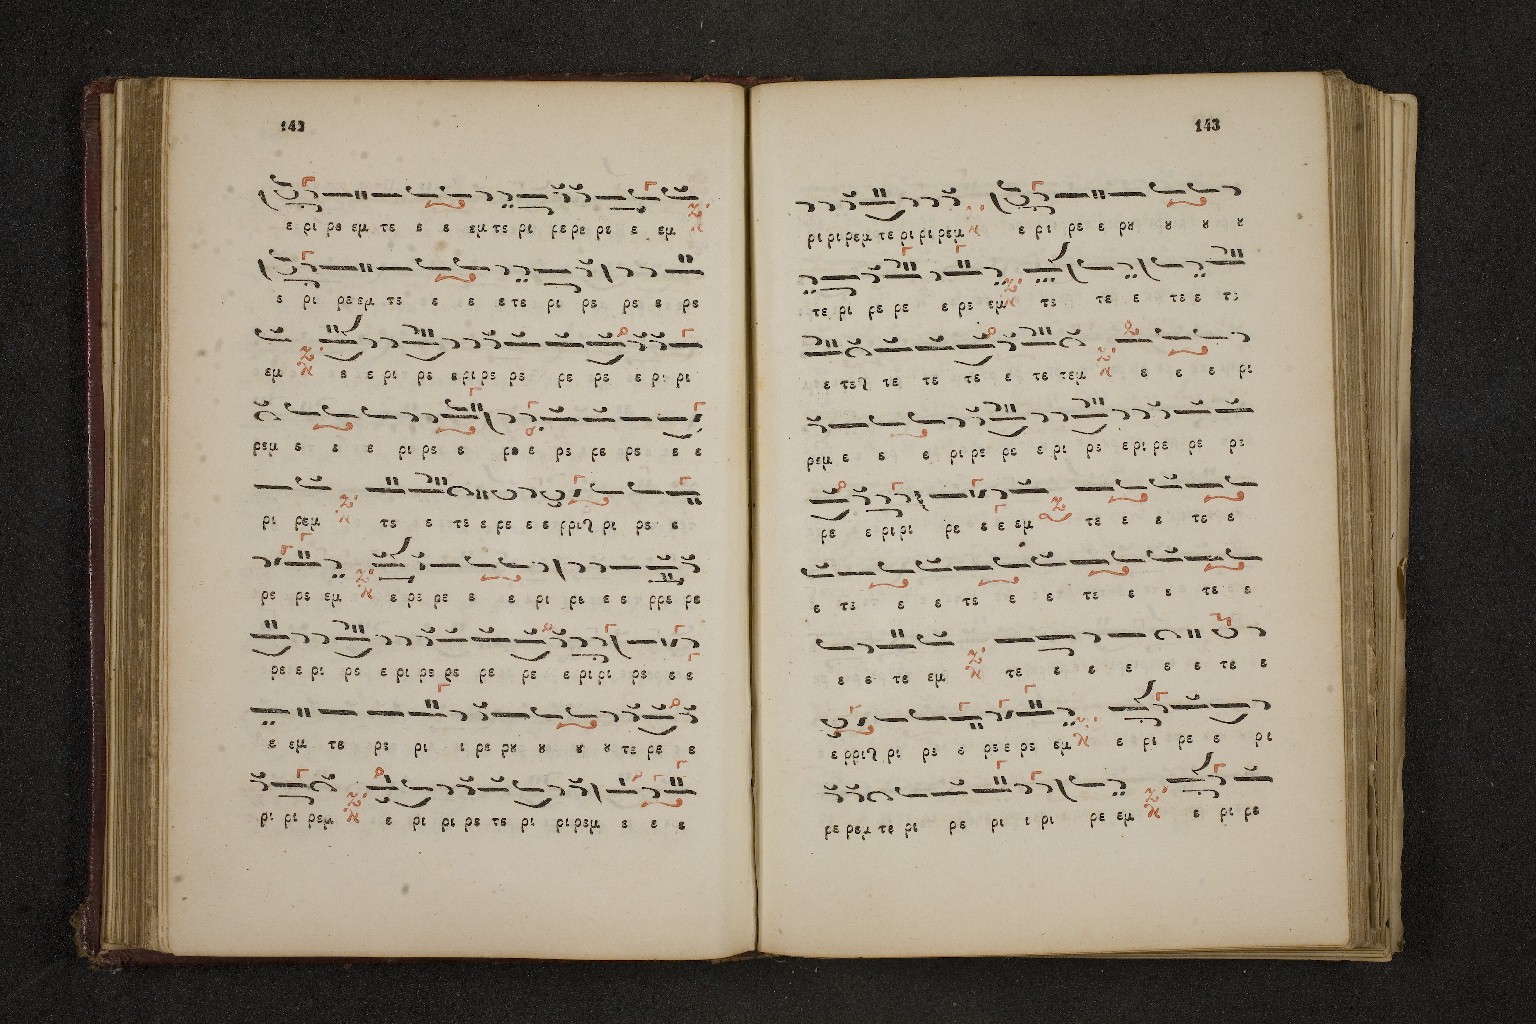 142
ε ρι ρε εμ τε ε ε εμ τε ρι ρε ρε ρε ε εμ
ε ρι ρε εμ τε ε ε ε τε ρι ρε ρε ε ρε
εμ ε ε ρι ρε ε ρι ρε ρε ρε ρε ε ρι ρι
ρεμ ε ε ε ρι ρε ε ρε ε ρε ρε ρε ε ε
ρι ρεμ τε ε τε ε ρε ε ε ρι ρε ε
ρε ρε εμ ε ρε ρε ε ε ρι ρε ε ε ρρε ρε
ρε ε ρι ρε ε ρι ρε ρε ρε ρε ε ρι ρι ρε ε ε
ε εμ τε ρε ρι ι ρε ρȣ ȣ ȣ ȣ τε ρε ε
ρι ρι ρεμ ε ρι ρι ρε τε ρι ρι ρεμ ε ε ε
143
ρι ρι ρεμ τε ρι ρι ρεμ ε ρι ρε ε ρȣ ȣ ȣ ȣ
τε ρι ρε ρε ε ρε εμ τε τε ε τε ε τε
ε τε τε τε τε ε τε τεμ ε ε ε ρι
ρεμ ε ε ε ρι ρε ρε ε ρι ρε ε ρι ρε ρε ρε
ρε ε ρι ρι ρε ε ε εμ τε ε ε τε ε
ε τε ε ε τε ε ε τε ε ε τε ε
ε ε τε εμ τε ε ε ε ε ε τε ε
ε ρι ρε ε ρε ε ρε εμ ε ρι ρε ε ρι
ρε ρεμ τε ρι ρε ρι ι ρι ρε εμ ε ρι ρε